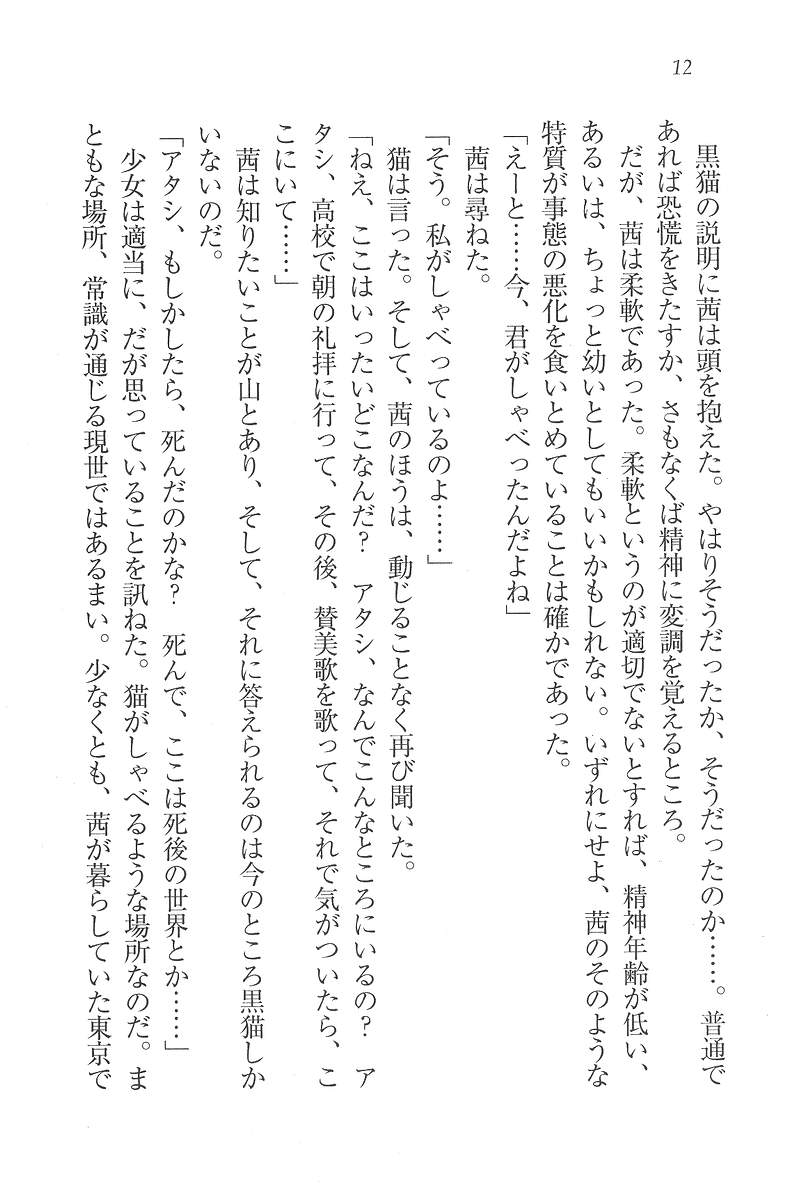 12
　黒猫の説明に茜は頭を抱えた。やはりそうだったか、そうだったのか……。普通で
あれば恐慌をきたすか、さもなくば精神に変調を覚えるところ。
　だが、茜は柔軟であった。柔軟というのが適切でないとすれば、精神年齢が低い、
あるいは、ちょっと幼いとしてもいいかもしれない。いずれにせよ、茜のそのような
特質が事態の悪化を食いとめていることは確かであった。
「えーと……今、君がしゃべったんだよね」
　茜は尋ねた。
「そう。私がしゃべっているのよ……」
　猫は言った。そして、茜のほうは、動じることなく再び聞いた。
「ねえ、ここはいったいどこなんだ？　アタシ、なんでこんなところにいるの？　ア
タシ、高校で朝の礼拝に行って、その後、賛美歌を歌って、それで気がついたら、こ
こにいて……」
　茜は知りたいことが山とあり、そして、それに答えられるのは今のところ黒猫しか
いないのだ。
「アタシ、もしかしたら、死んだのかな？　死んで、ここは死後の世界とか……」
　少女は適当に、だが思っていることを訊ねた。猫がしゃべるような場所なのだ。ま
ともな場所、常識が通じる現世ではあるまい。少なくとも、茜が暮らしていた東京で